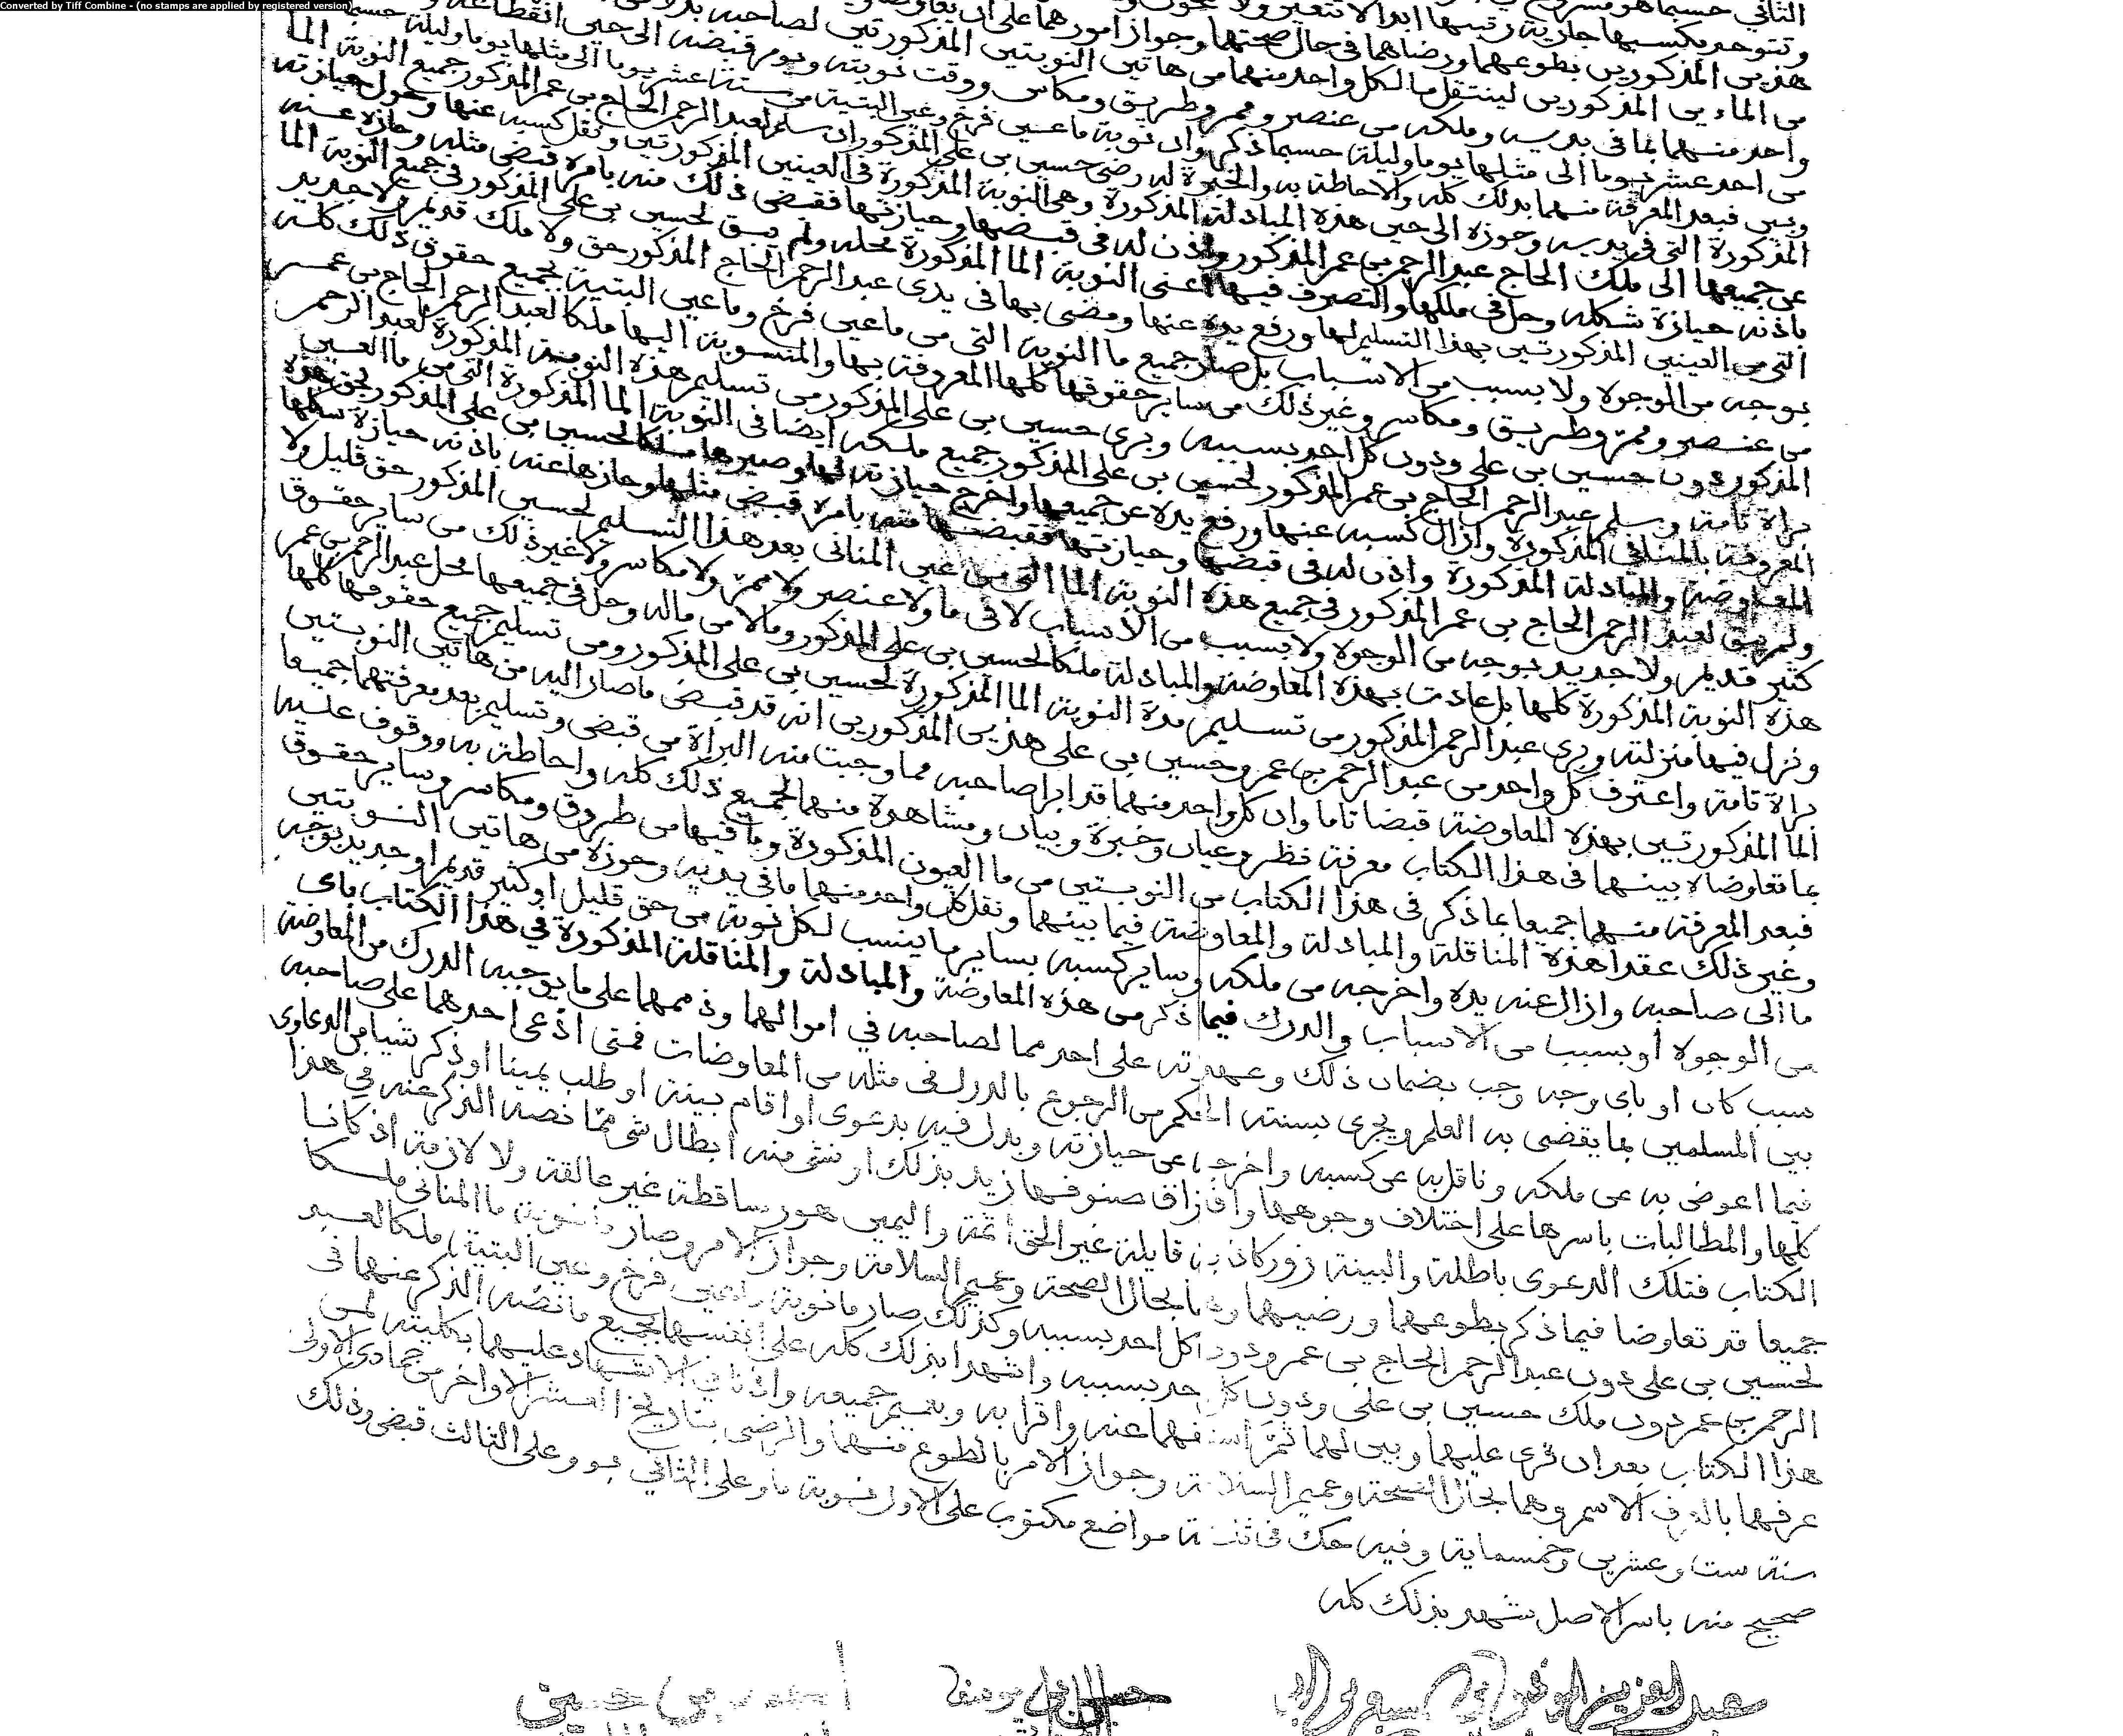 Converted by Tiff Combine - (no stamps are applied by registered version)
وتتوحد بكسبها جارية رتبتها ابدا لا تتغير ولا
هذين المذكورين بطوعهما ورضاهما في حال صحتهما وجواز امورهما على ان
من الماء بين المذكورين لينتقل ما لكل واحد منهما من هاتين النوبتين المذكورتين لصاحبه
واحد منهما بما في يديه وملكه من عنصر وممر وطريق ومكاسر ووقت نوبته ويوم قبضه الى حين انقطاعه
من احد عشر يوما الى مثلها يوما وليلة حسبما ذكر وان نوبة ما عين فرخ وعين البتية من ستة عشر يوما الى مثلها يوما وليلة
وبين فبعد المعرفة منهما بذلك كله والاحاطة به والخبرة له رضي حسين بن علي المذكور ان سلم لعبد الرحمن الحاج بن عمر المذكور جميع النوبة الما
المذكورة التي في يديه وحوزه الى حين هذه المبادلة المذكورة وهي النوبة المذكورة في العينين المذكورتين ونقل كسبه عنها وحول حيازته
عن جميعها الى ملك الحاج عبد الرحمن بن عمر المذكور واذن له في قبضها وحيازتها فقبض ذلك منه بامره قبض مثله وحازه عنه
باذنه حيازة شكله وحل في ملكها والتصرف فيها اعني النوبة الما المذكورة محله ولم يبق لحسين بن علي المذكور في جميع النوبة الما
التي من العينين المذكورتين بهذا التسليم لها ورفع يده عنها ومضى بها في يدي عبد الرحمن الحاج المذكور حق ولا ملك قديم ولا جديد
بوجه من الوجوه ولا بسبب من الاسباب بل صار جميع ما النوبة التي من ما عين فرخ وما عين البتية بجميع حقوق ذلك كله
من عنصر وممر وطريق ومكاسر وغير ذلك من ساير حقوقها كلها المعروفة بها والمنسوبة اليها ملكا لعبد الرحمن الحاج بن عمر
المذكور دون حسين بن علي ودون كل احد بسببه وبري حسين بن علي المذكور من تسليم هذه النوبة المذكورة لعبد الرحمن
براة تامة وسلم عبد الرحمن الحاج بن عمر المذكور لحسين بن علي المذكور جميع ملكه ايضا في النوبة الما المذكورة التي من ما العين
المعروفة بالمناني المذكورة وازال كسبه عنها ورفع يده عن جميعها واخرج حيازته لها وصيرها ملكا لحسين بن علي المذكور بحق هذه
المعاوضة والمبادلة المذكورة واذن له في قبضها وحيازتها فقبضها منه بامره قبض مثلها وحازها عنه باذنه حيازة شكلها
ولم يبق لعبد الرحمن الحاج بن عمر المذكور في جميع هذه النوبة الما التي من عين المناني بعد هذا التسليم لحسين المذكور حق قليل ولا
كثير قديم ولا جديد بوجه من الوجوه ولا بسبب من الاسباب لا في ما ولا عنصر ولا ممر ولا مكاسر ولا غير ذلك من ساير حقوق
هذه النوبة المذكورة كلها بل عادت بهذه المعاوضة والمبادلة ملكا لحسين بن علي المذكور ومالا من ماله وحل في جميعها محل عبد الرحمن بن عمر
ونزل فيها منزلته وبري عبد الرحمن المذكور من تسليم مدة النوبة الما المذكورة لحسين بن علي المذكور ومن تسليم جميع حقوقها كلها
براة تامة واعترف كل واحد من عبد الرحمن بن عمر وحسين بن علي هذين المذكورين انه قد قبض ما صار اليه من هاتين النوبتين
الما المذكورتين بهذه المعاوضة قبضا تاما وان كل واحد منهما قد ابرا صاحبه مما وجبت منه البراة من قبض وتسليم بعد معرفتهما جميعا
بما تعاوضا به بينهما في هذا الكتاب معرفة نظر وعيان وخبرة وبيان ومشاهدة منهما لجميع ذلك كله واحاطة به ووقوف عليه
فبعد المعرفة منهما جميعا بما ذكر في هذا الكتاب من النوبتين من ما العيون المذكورة وما فيها من طروق ومكاسر وساير حقوق
وغير ذلك عقدا هذه المناقلة والمبادلة والمعاوضة فيما بينهما ونقل كل واحد منهما ما في يديه وحوزه من هاتين النوبتين
ما الى صاحبه وازال عنه يده واخرجه من ملكه وساير كسبه بساير ما ينسب لكل نوبة من حق قليل او كثير قديم او جديد بوجه
من الوجوه او بسبب من الاسباب والدرك فيما ذكر من هذه المعاوضة والمبادلة والمناقلة المذكورة في هذا الكتاب باي
سبب كان او باي وجه وجب بضمان ذلك وعهدته على احد مما لصاحبه في اموالهما وذممهما على ما يوجبه الدرك من المعاوضة
بين المسلمين بما يقضي به العلم ويجري بسنته الحكم من الرجوع بالدرك في مثله من المعاوضات فمتى ادعى احدهما على صاحبه
فيما اعوض به عن ملكه وناقل به عن كسبه واخرجه عن حيازته وبدل فيه بدعوى او اقام بينة او طلب يمينا او ذكر شيا من الدعاوى
كلها والمطالبات باسرها على اختلاف وجوهها وافتراق صنوفها زيد بذلك او نشي منه ابطال شي مما نصه الذكر عنه في هذا
الكتاب فتلك الدعوى باطلة والبينة زور كاذبة قايلة غير الحق اثمة واليمين ساقطة غير عالقة ولا لازمة اذ كانا
جميعا قد تعاوضا فيما ذكر بطوعهما ورضيهما بحال الصحة وعميم السلامة وجواز الامر وصار نوبة ما المناني ملكا
لحسين بن علي دون عبد الرحمن الحاج بن عمر ودون كل احد بسببه وكذلك صار ما نوبة عين فرخ وعين البتية ملكا لعبد
الرحمن بن عمر دون ملك حسين بن علي ودون كل احد بسببه واشهدا بذلك كله على انفسهما بجميع ما نصه الذكر عنهما في
هذا الكتاب بعد ان قري عليهما وبين لهما ثم عنه واقرا به وبفهم جميعه واذنا في الاشهاد عليهما بكليته لمن
عرفهما بال الاسم وهما بحال الصحة وعميم السلامة وجواز الامر بالطوع منهما والرضى بتاريخ العشر الاواخر من جمادى الاولى
سنة ست وعشرين وخمسماية وفيه حك في ثلاثة مواضع مكتوب على الاول نوبة ما وعلى الثاني وعلى الثالث قبض وذلك
صحيح منه باسر الاصل شهد بذلك كله
عبد العزيز حسين بن يوسف بن حسين